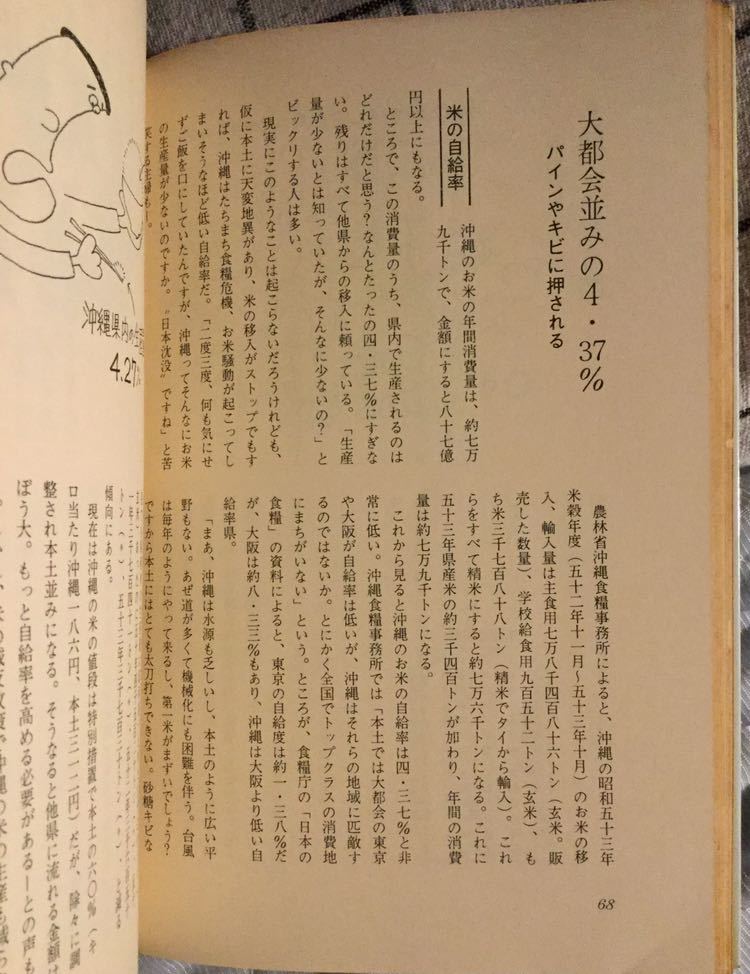 大都会並みの4・37%
パインやキビに押される
米の自給率
沖縄のお米の年間消費量は、約七万
九千トンで、金額にすると八十七億
円以上にもなる。
ところで、この消費量のうち、県内で生産されるのは
どれだけだと思う?なんとたったの四・三七%にすぎな
い。残りはすべて他県からの移入に頼っている。「生産
量が少ないとは知っていたが、そんなに少ないの?」と
ビックリする人は多い。
現実にこのようなことは起こらないだろうけれども、
仮に本土に天変地異があり、米の移入がストップでもす
れば、沖縄はたちまち食糧危機、お米騒動が起こってし
まいそうなほど低い自給率だ。「二度三度、何も気にせ
ずご飯を口にしていたんですが、沖縄ってそんなにお米
の生産量が少ないのですか。〝日本沈没〟ですね」と苦
笑する主婦も―。
農林省沖縄食糧事務所によると、沖縄の昭和五十三年
米穀年度(五十二年十一月~五十三年十月)のお米の移
入、輸入量は主食用七万八千四百八十六トン(玄米。販
売した数量)、学校給食用九百五十二トン(玄米)、も
ち米三千七百八十八トン(精米でタイから輸入)。これ
らをすべて精米にすると約七万六千トンになる。これに
五十三年県産米の約三千四百トンが加わり、年間の消費
量は約七万九千トンになる。
これから見ると沖縄のお米の自給率は四・三七%と非
常に低い。沖縄食糧事務所では「本土では大都会の東京
や大阪が自給率は低いが、沖縄はそれらの地域に匹敵す
るのではないか。とにかく全国でトップクラスの消費地
にまちがいない」という。ところが、食糧庁の「日本の
食糧」の資料によると、東京の自給度は約一・三八%だ
が、大阪は約八・三三%もあり、沖縄は大阪より低い自
給率県。
「まあ、沖縄は水源も乏しいし、本土のように広い平
野もない。あぜ道が多くて機械化にも困難を伴う。台風
は毎年のようにやって来るし、第一米がまずいでしょう?
ですから本土にはとても太刀打ちできない。砂糖キビな
68
沖縄県内の生
4.27
傾向にある。
現在は沖縄の米の値段は特別措置で本土の六〇%(キ
ロ当たり沖縄一八六円、本土三一二円)だが、除々に調
整され本土並みになる。そうなると他県に流れる金額は
ぼう大。もっと自給率を高める必要があるーとの声も